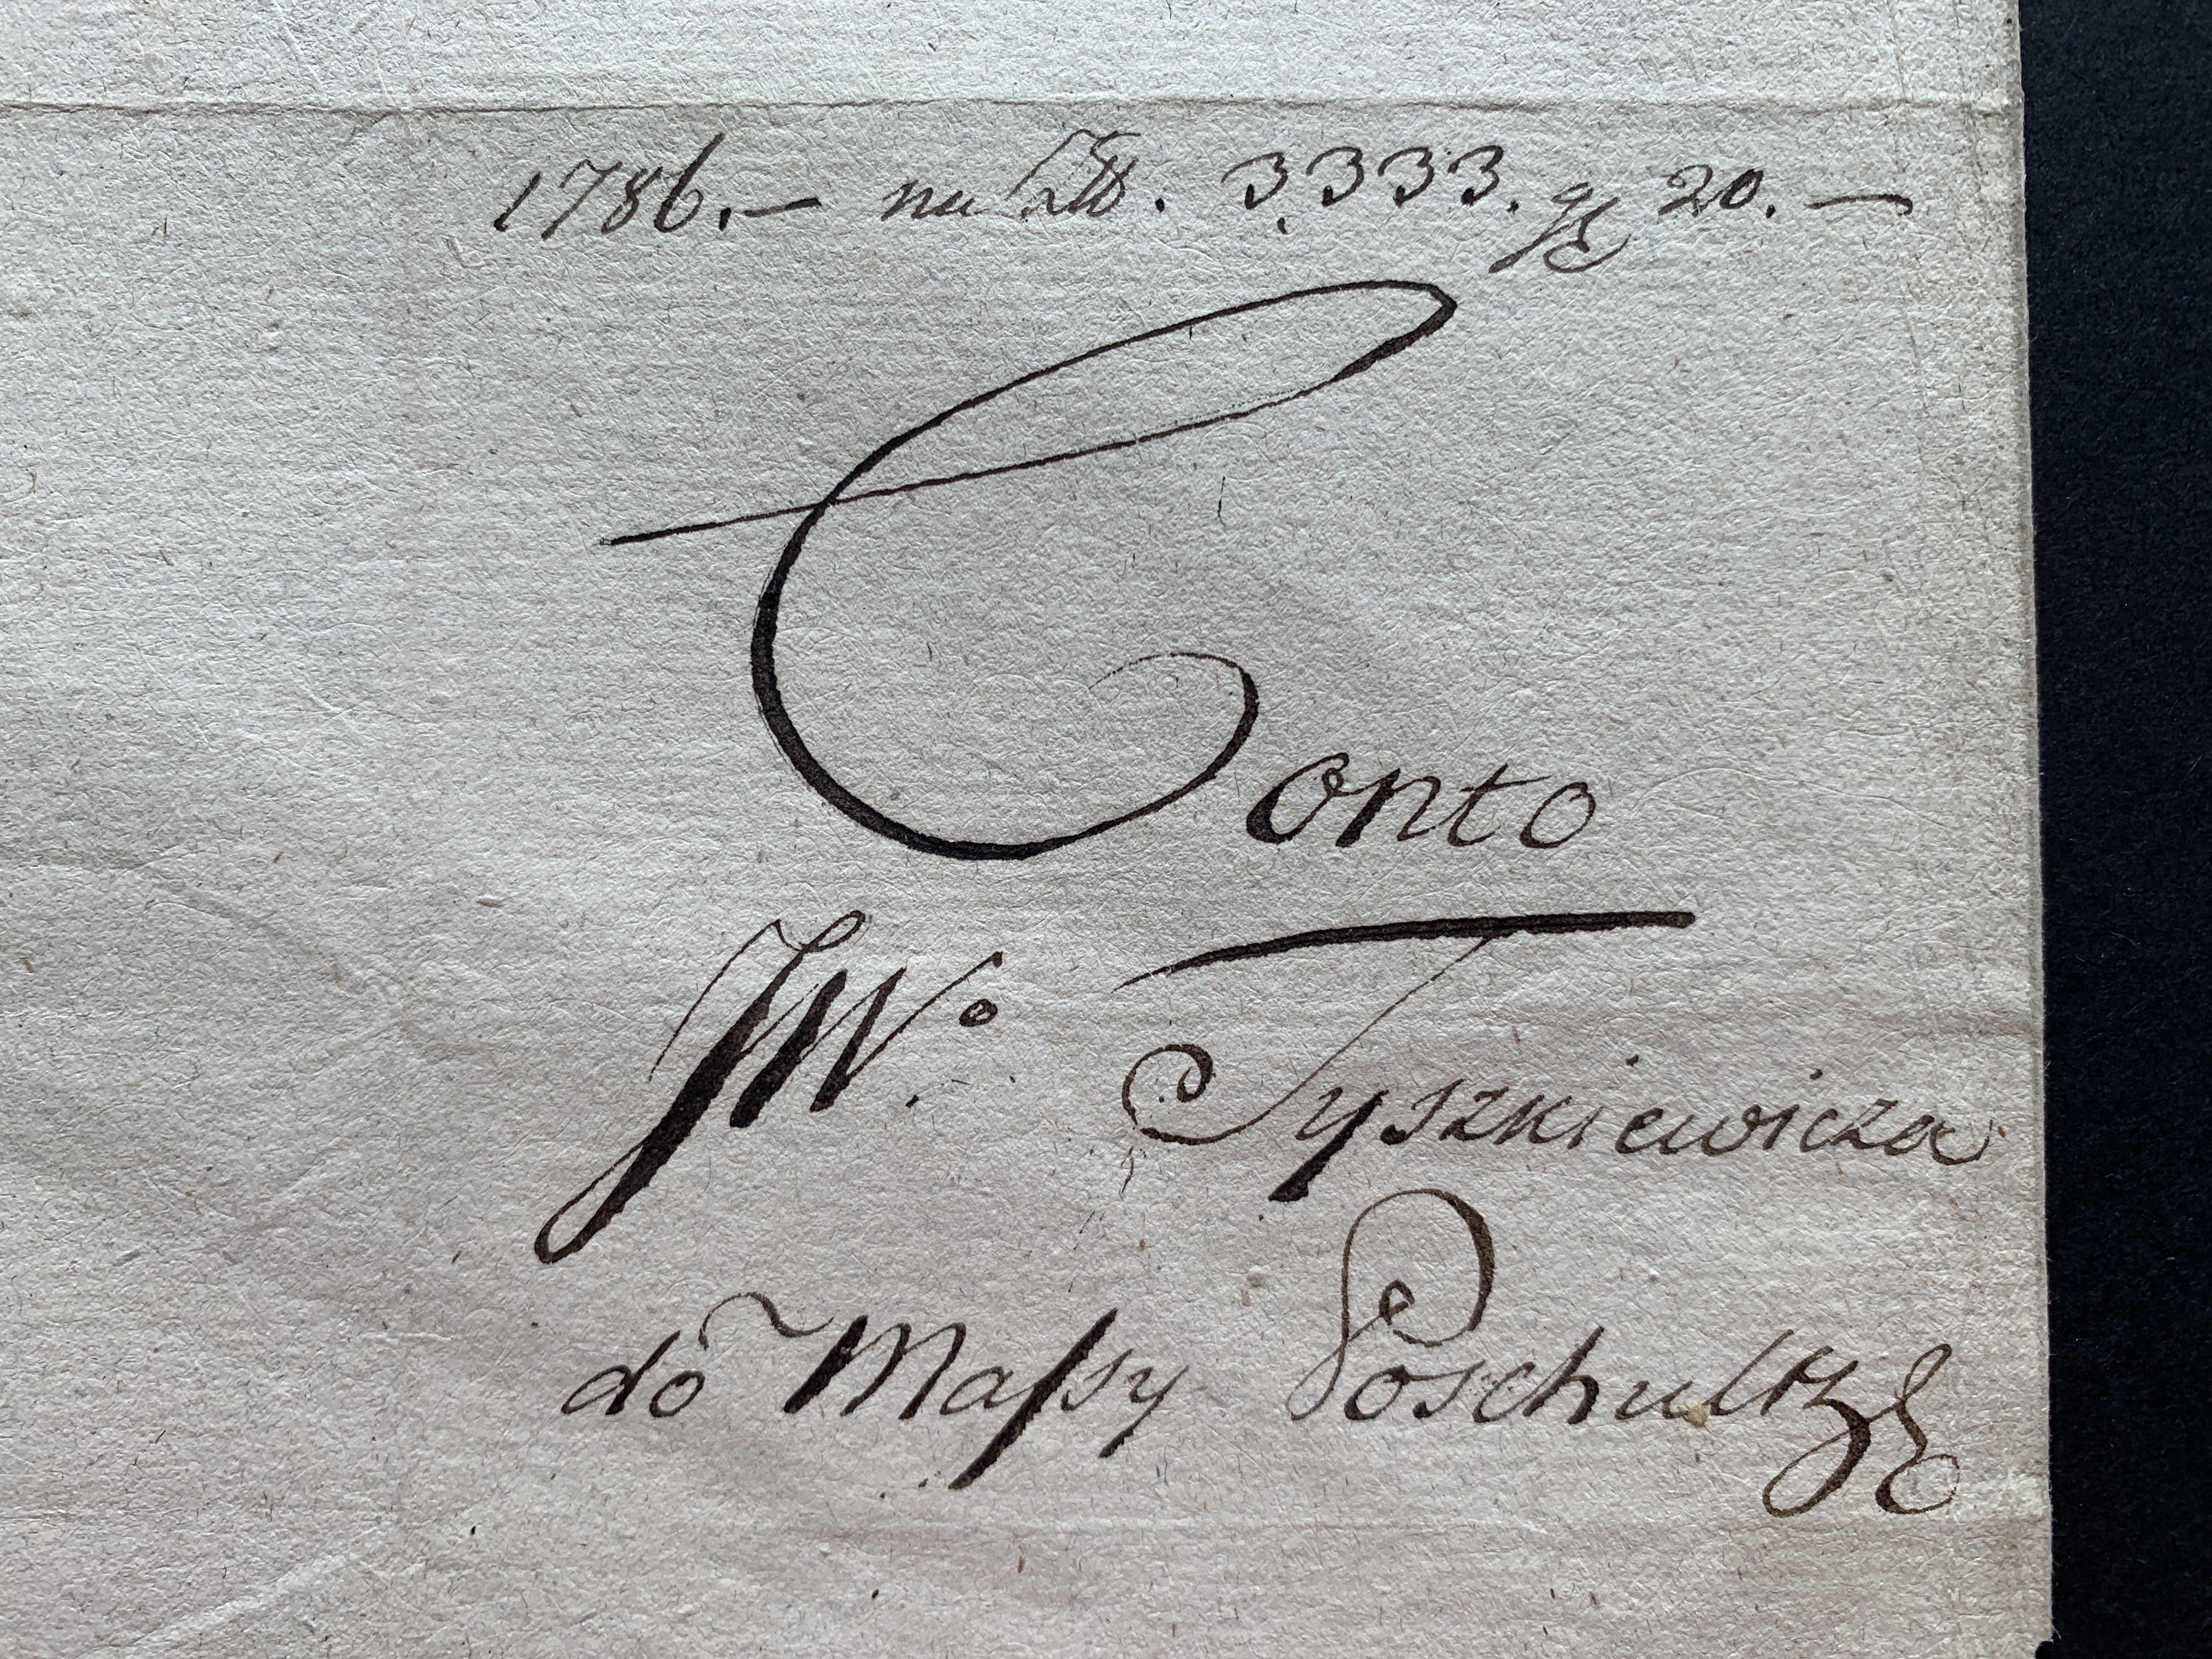 1786. — na Złł. 3,333. gr 20. —
Conto
JWo. Tyszkiewicza
do Maſsy Poschultz